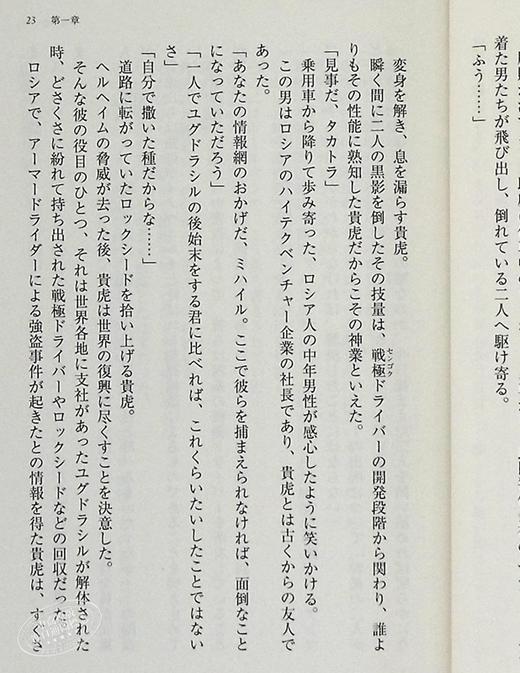 着た男たちが飛び出し、倒れている二人へ駆け寄る。
「ふう……」
23 第一章
変身を解き、息を漏らす貴虎。
瞬く間に二人の黒影を倒したその技量は、戦極ドライバーの開発段階から関わり、誰よ
センゴク
りもその性能に熟知した貴虎だからこその神業といえた。
「見事だ、タカトラ」
乗用車から降りて歩み寄った、ロシア人の中年男性が感心したように笑いかける。
この男はロシアのハイテクベンチャー企業の社長であり、貴虎とは古くからの友人で
あった。
「あなたの情報網のおかげだ、ミハイル。ここで彼らを捕まえられなければ、面倒なこと
になっていただろう」
「一人でユグドラシルの後始末をする君に比べれば、これくらいたいしたことではない
さ」
「自分で撒いた種だからな……」
道路に転がっていたロックシードを拾い上げる貴虎。
ヘルヘイムの脅威が去った後、貴虎は世界の復興に尽くすことを決意した。
そんな彼の役目のひとつ、それは世界各地に支社があったユグドラシルが解体された
時、どさくさに紛れて持ち出された戦極ドライバーやロックシードなどの回収だった
ロシアで、アーマードライダーによる強盗事件が起きたとの情報を得た貴虎は、すぐさ